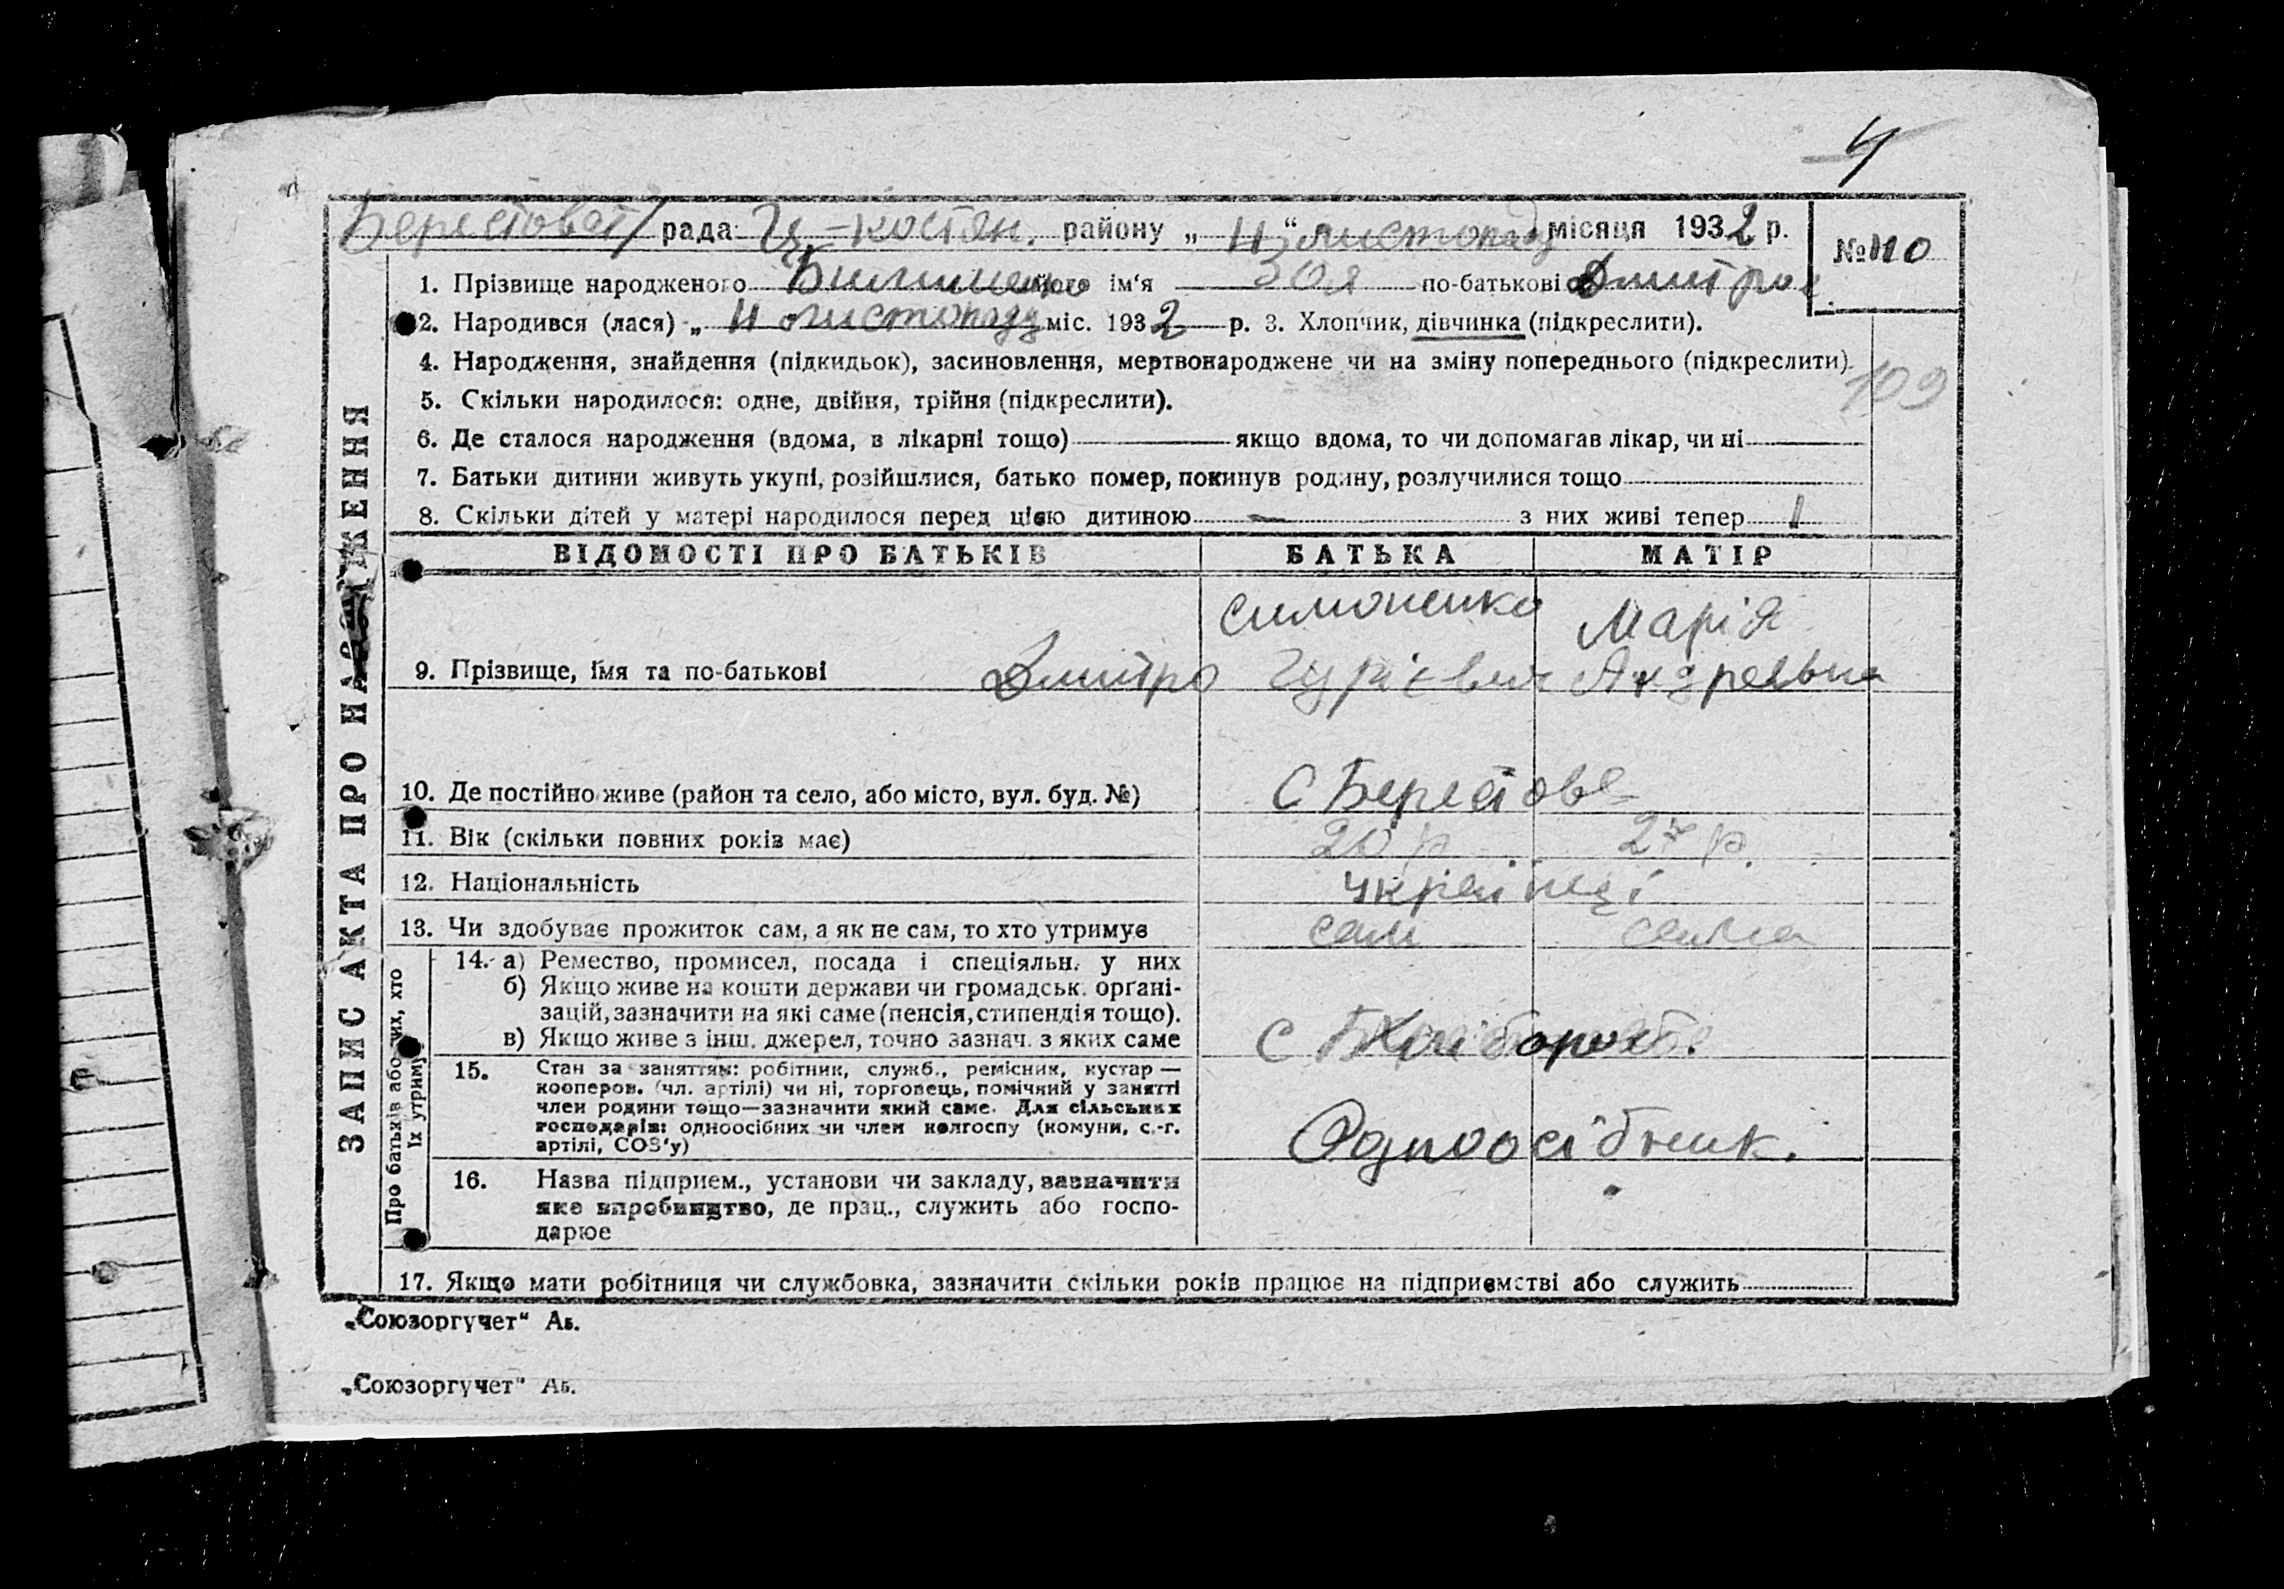 4
Берестоват/ рада Ц-костян. району „ 11 “ листопад місяця 1932 р. №110
1. Прізвище народженого його ім‘я Зоя по-батькові Дмитров.
2. Народився (лася) „ 11 листопаду міс. 1932 р. 3. Хлопчик, дівчинка (підкреслити).
4. Народження, знайдення (підкидьок), засиновлення, мертвонароджене чи на зміну попереднього (підкреслити).
109
5. Скільки народилося: одне, двійня, трійня (підкреслити).
6. Де сталося народження (вдома, в лікарні тощо) якщо вдома, то чи допомагав лікар, чи ні
7. Батьки дитини живуть укупі, розійшлися, батько помер, покинув родину, розлучилися тощо
8. Скільки дітей у матері народилося перед цією дитиною — з них живі тепер 1
ЗАПИС АКТА ПРО НАРОДЖЕННЯ
ВІДОМОСТІ ПРО БАТЬКІВ БАТЬКА МАТІР
Симоненко Марія
9. Прізвище, імя та по-батькові Дмитро Гурієвич Андреевна
10. Де постійно живе (район та село, або місто, вул. буд. №) С Берестове
11. Вік (скільки повних років має) 20 р 27 р.
12. Національність українці
13. Чи здобуває прожиток сам, а як не сам, то хто утримує сам сама
Про батьків або тих, хто їх утримує
14. а) Ремество, промисел, посада і спеціяльн. у них
б) Якщо живе на кошти держави чи громадськ. органі-
зацій, зазначити на які саме (пенсія, стипендія тощо).
в) Якщо живе з інш. джерел, точно зазнач. з яких саме
15. Стан за заняттям: робітник, служб., ремісник, кустар —
кооперов. (чл. артілі) чи ні, торговець, помічний у занятті
член родини тощо—зазначити який саме. Для сільських
господарів: одноосібник чи член колгоспу (комуни, с.-г.
артілі, СОЗ‘у) Одноосібник.
16. Назва підприєм., установи чи закладу, зазначити
яке виробництво, де прац., служить або госпо-
дарює
17. Якщо мати робітниця чи службовка, зазначити скільки років працює на підприємстві або служить
„Союзоргучет“ Аб.
„Союзоргучет“ Аб.